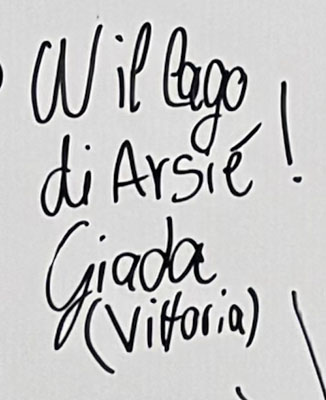 W il lago
di Arsié!
Giada
(Vittoria)